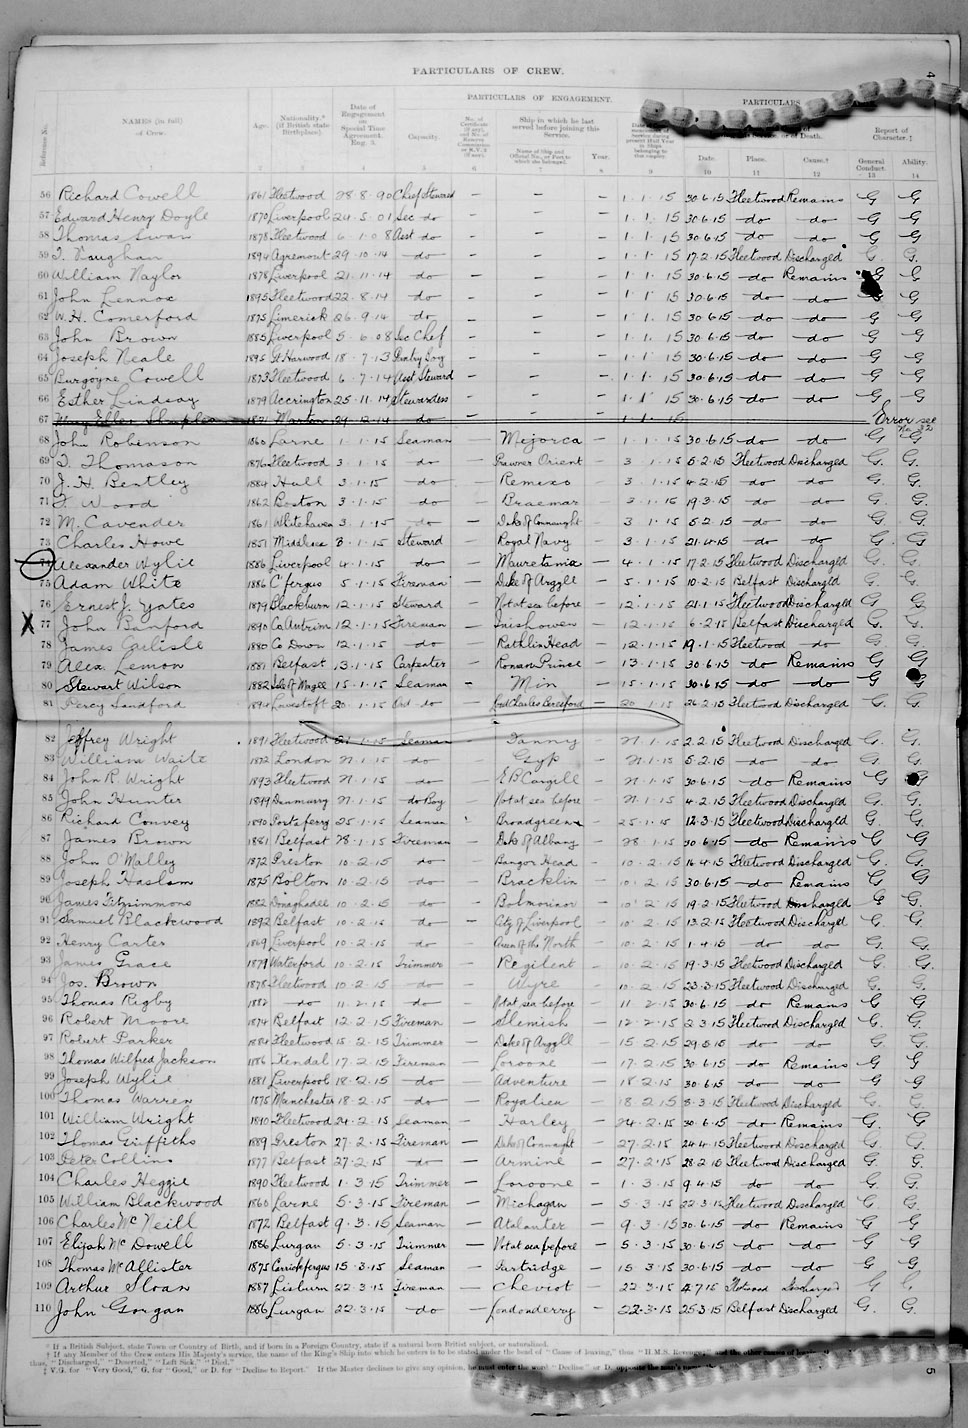 4
PARTICULARS OF CREW.
Reference No. NAMES (in full) of Crew. Age. Nationality.* (If British state Birthplace). Date of Engagement on Special Time Agreement. Eng. 3. Capacity. PARTICULARS OF ENGAGEMENT. PARTICULARS
No. of Certificate (if any), and No. of Reserve Commission or R.V. 2 (if any). Ship in which he last served before joining this Service. Name of Ship and Official No., or Port to which she belonged. Year. of Death. Report of Character.‡
Date. Place. Cause.† General Conduct. Ability.
1 2 4 5 6 7 8 9 10 11 12 13 14
56 Richard Cowell 1861 Fleetwood 28.8.90 Chief Steward – – – 1.1.15 30.6.15 Fleetwood Remains G G
57 Edward Henry Doyle 1870 Liverpool 24.5.01 Sec do – – – 1.1.15 30.6.15 do do G G
58 Thomas Swan 1878 Fleetwood 6.1.08 Asst do – – – 1.1.15 30.6.15 do do G G
59 T. Vaughan 1894 Agremont 29.10.14 do – – – 1.1.15 17.2.15 Fleetwood Discharged G. G.
60 William Naylor 1878 Liverpool 21.11.14 do – – – 1.1.15 30.6.15 do Remains G G
61 John Lennox 1895 Fleetwood 22.8.14 do – – – 1.1.15 30.6.15 do do G G
62 W.H. Comerford 1875 Limerick 26.9.14 do – – – 1.1.15 30.6.15 do do G G
63 John Brown 1885 Liverpool 5.6.08 Sec Chef – – – 1.1.15 30.6.15 do do G G
64 Joseph Neale 1895 Gt Harwood 18.7.13 Pantry Boy – – – 1.1.15 30.6.15 do do G G
65 Burgoyne Cowell 1873 Fleetwood 6.7.14 Asst Steward – – – 1.1.15 30.6.15 do do G G
66 Esther Lindsay 1879 Accrington 25.11.14 Stewardess – – – 1.1.15 30.6.15 do do G G
67 Mary Ellen 1871 Marton 29.12.14 do 1.1.15 Error see No. 32
68 John Robinson 1860 Larne 1.1.15 Seaman – Mejorca – 1.1.15 30.6.15 do do G G
69 T. Thomason 1876 Fleetwood 3.1.15 do – Prawner Orient – 3.1.15 5.2.15 Fleetwood Discharged G. G.
70 J.H. Bentley 1884 Hull 3.1.15 do – Remexo – 3.1.15 4.2.15 do do G. G.
71 F. Wood 1862 Boston 3.1.15 do – Braemar – 3.1.15 19.3.15 do do G. G.
72 M. Cavender 1861 Whitehaven 3.1.15 do – Duke of Connaught – 3.1.15 5.2.15 do do G. G.
73 Charles Howe 1851 Middlesex 3.1.15 Steward – Royal Navy – 3.1.15 21.4.15 do do G. G.
74 Alexander Wylie 1886 Liverpool 4.1.15 do – Mauretania – 4.1.15 17.2.15 Fleetwood Discharged G. G.
75 Adam White 1886 C'fergus 5.1.15 Fireman – Duke of Argyll – 5.1.15 10.2.15 Belfast Discharged G. G.
76 Ernest J. Yates 1879 Blackburn 12.1.15 Steward – Not at sea before – 12.1.15 21.1.15 Fleetwood Discharged G G.
X 77 John Banford 1890 Co Antrim 12.1.15 Fireman – Inishowen – 12.1.15 6.2.15 Belfast Discharged G. G.
78 James Carlisle 1880 Co Down 12.1.15 do – Rathlin Head – 12.1.15 19.1.15 Fleetwood do G. G.
79 Alex. Lemon 1881 Belfast 13.1.15 Carpenter – Roman Prince – 13.1.15 30.6.15 do Remains G G
80 Stewart Wilson 1882 Isle of Magee 15.1.15 Seaman – Min – 15.1.15 30.6.15 do do G G
81 Percy Sandford 1894 Lowestoft 20.1.15 Ord do – Lord Charles Beresford – 20.1.15 26.2.15 Fleetwood Discharged G. G.
82 Jeffrey Wright 1891 Fleetwood 21.1.15 Seaman – Fanny – 21.1.15 2.2.15 Fleetwood Discharged G. G.
83 William Waite 1872 London 21.1.15 do – Gyp – 21.1.15 5.2.15 do do G. G.
84 John R. Wright 1893 Fleetwood 21.1.15 do – E B Cargill – 21.1.15 30.6.15 do Remains G G
85 John Hunter 1899 Dunmurry 21.1.15 do Boy – Not at sea before – 21.1.15 4.2.15 Fleetwood Discharged G. G.
86 Richard Convey 1890 Portaferry 25.1.15 Seaman Broadgreen – 25.1.15 12.3.15 Fleetwood Discharged G. G.
87 James Brown 1881 Belfast 28.1.15 Fireman – Duke of Albany – 28.1.15 30.6.15 do Remains G G
88 John O'Malley 1872 Preston 10.2.15 do – Bangor Head – 10.2.15 16.4.15 Fleetwood Discharged G. G.
89 Joseph Haslam 1875 Bolton 10.2.15 do – Bracklin – 10.2.15 30.6.15 do Remains G G
90 James Fitzsimmons 1882 Donaghadee 10.2.15 do – Balmoriar – 10.2.15 19.2.15 Fleetwood Discharged G G.
91 Samuel Blackwood 1892 Belfast 10.2.15 do – City of Liverpool – 10.2.15 13.2.15 Fleetwood Discharged G. G.
92 Henry Carter 1869 Liverpool 10.2.15 do – Queen of the North – 10.2.15 1.4.15 do do G. G.
93 James Grace 1879 Waterford 10.2.15 Trimmer – Regilent – 10.2.15 19.3.15 Fleetwood Discharged G. G.
94 Jos. Brown 1878 Fleetwood 10.2.15 do – Wyre – 10.2.15 23.3.15 Fleetwood Discharged G. G.
95 Thomas Rigby 1882 do 11.2.15 do – Not at sea before – 11.2.15 30.6.15 do Remains G G
96 Robert Moore 1874 Belfast 12.2.15 Fireman – Slemish – 12.2.15 2.3.15 Fleetwood Discharged G. G.
97 Robert Parker 1884 Fleetwood 15.2.15 Trimmer – Duke of Argyll – 15.2.15 29.5.15 do do G. G.
98 Thomas Wilfred Jackson 1886 Kendal 17.2.15 Fireman – Loroone – 17.2.15 30.6.15 do Remains G G
99 Joseph Wylie 1881 Liverpool 18.2.15 do – Adventure – 18.2.15 30.6.15 do do G G
100 Thomas Warren 1875 Manchester 18.2.15 do – Royalieu – 18.2.15 8.3.15 Fleetwood Discharged G. G.
101 William Wright 1890 Fleetwood 24.2.15 Seaman – Harley – 24.2.15 30.6.15 do Remains G G
102 Thomas Griffiths 1889 Preston 27.2.15 Fireman – Duke of Connaught – 27.2.15 24.4.15 Fleetwood Discharged G. G.
103 Peter Collins 1877 Belfast 27.2.15 do – Armine – 27.2.15 28.2.15 Fleetwood Discharged G. G.
104 Charles Heggie 1890 Fleetwood 1.3.15 Trimmer – Loroone – 1.3.15 9.4.15 do do G. G.
105 William Blackwood 1860 Larne 5.3.15 Fireman – Michagan – 5.3.15 22.3.15 Fleetwood Discharged G. G.
106 Charles McNeill 1872 Belfast 9.3.15 Seaman – Atalanter – 9.3.15 30.6.15 do Remains G G
107 Elijah McDowell 1886 Lurgan 5.3.15 Trimmer – Not at sea before – 5.3.15 30.6.15 do do G G
108 Thomas McAllister 1875 Carrickfergus 15.3.15 Seaman – Partridge – 15.3.15 30.6.15 do do G G
109 Arthur Sloan 1887 Lisburn 22.3.15 Fireman – Cheviot – 22.3.15 4.7.15 Fleetwood Discharged G G.
110 John Gorgan 1886 Lurgan 22.3.15 do – Londonderry – 22.3.15 25.3.15 Belfast Discharged G. G.
* If a British Subject, state Town or Country of Birth, and if born in a Foreign Country, state if a natural born British subject, or naturalised.
† If any Member of the Crew enters His Majesty's service, the name of the King's Ship into which he enters is to be stated under the head of "Cause of leaving," thus "H.M.S. Revenge;" and the other causes of leaving
thus, "Discharged," "Deserted," "Left Sick," "Died."
‡ V.G. for "Very Good," G. for "Good," or D. for "Decline to Report." If the Master declines to give any opinion, he must enter the word "Decline" or D. opposite the man's name
5